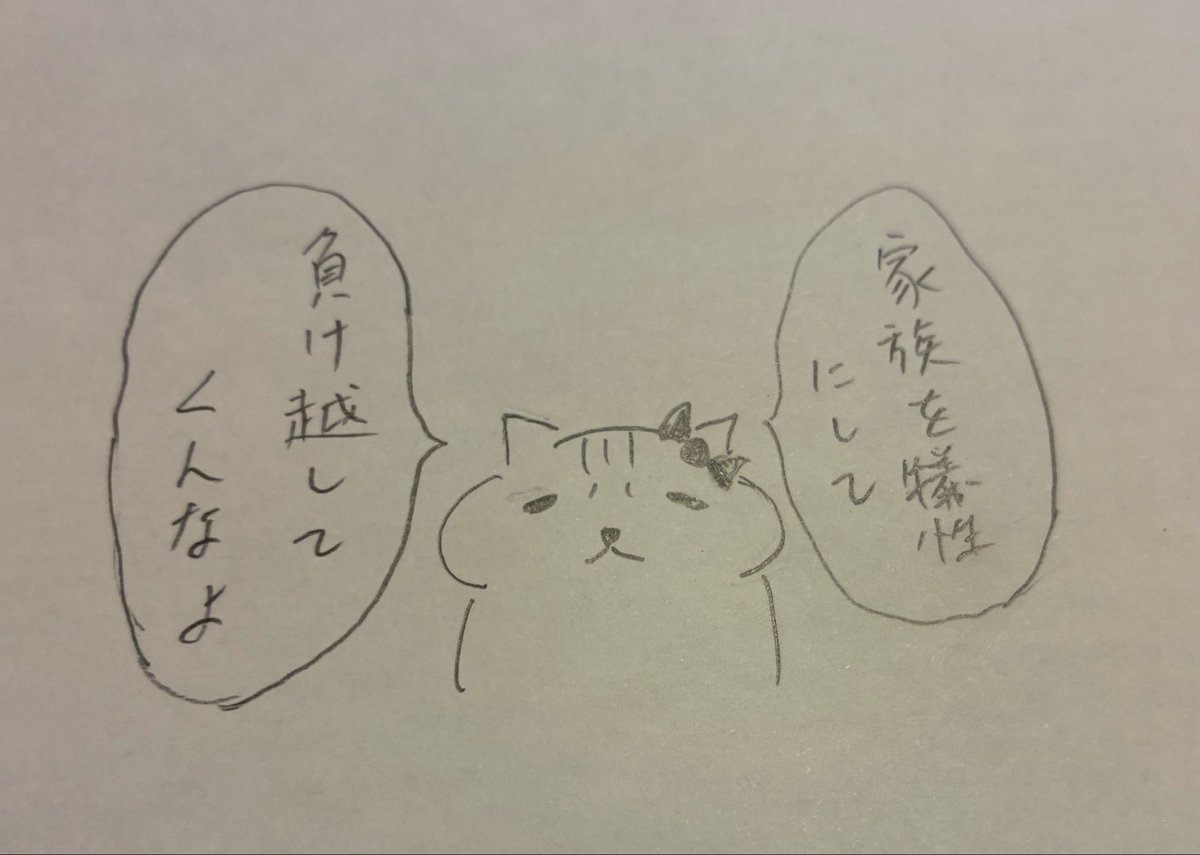 家族を犠性
にして
負け越して
くんなよ